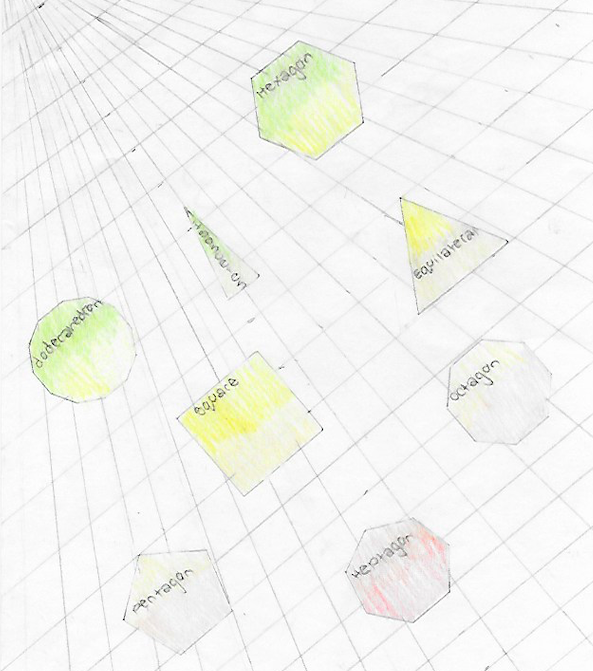 Hexagon
Equilateral
dodecahedron
square
octagon
Heptagon
Pentagon